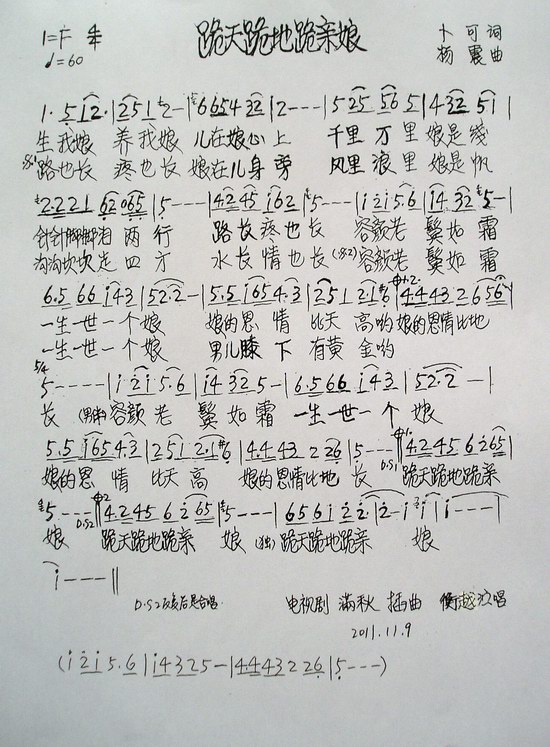 跪天跪地跪亲娘
1=F 4/4
♩=60
卜可 词
杨震 曲
1· 5 1 2· | 2 5 1 2 - | 6 6 5 4 3 2 | 2 - - - | 5 2 5 5 6 5 | 4 3 2 5 1 |
生我娘 养我娘 儿在娘心上 千里万里娘是线
路也长 疼也长 娘在儿身旁 风里浪里娘是帆
2·2 2 1 6 2 0 6 5 | 5 - - - | 4 2 4 5 i 6 2 | 5 - - - | i 2 i 5·6 | i 4 3 2 5 - |
针针脚脚泪两行 路长疼也长 容颜老 鬓如霜
沟沟坎坎走四方 水长情也长 容颜老 鬓如霜
6·5 6 6 i 4 3 | 5 2·2 - | 5·5 i 6 5 4·3 | 2 5 1 2·1 6 | 4·4 4 3· 2 6 5 6
一生一世一个娘 娘的恩情 比天高哟娘的恩情比地
一生一世一个娘 男儿膝下 有黄金哟
5/4
5 - - - - | i 2 i 5·6 | i 4 3 2 5 - | 6·5 6 6 i 4 3 | 5 2·2 - |
长 容颜老 鬓如霜 一生一世一个娘
5·5 i 6 5 4·3 | 2 5 1 2·1 6 | 4·4 4 3 2 2 6 | 5 - - - | 4·2 4 5 6 2 6 5 |
D.S1
娘的恩情 比天高 娘的恩情比地长 跪天跪地跪亲
5 - - - | 4·2 4 5 6 2 6 5 | 5 - - - | 6 5 6 i 2 2 | 2 - i i | i - - - |
D.S2
娘 跪天跪地跪亲娘 (独)跪天跪地跪亲娘
i - - - ||
D.S2反复后是合唱
电视剧 满秋 插曲 衡越 演唱
2011.11.9
(i 2 i 5·6 | i 4 3 2 5 - | 4·4 4 3 2 2 6 | 5 - - -)